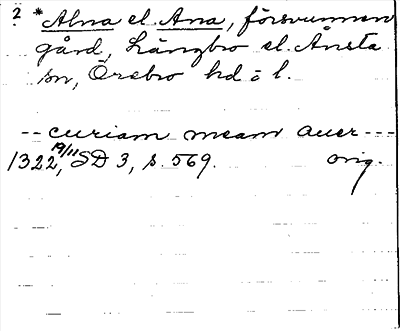 ? *Alna el. Ana, försvunnen
gård, Längbro el. Ånsta
sn, Örebro hd o l.
-- curiam meam auer ---
1322 19/11, SD 3, s. 569. orig.